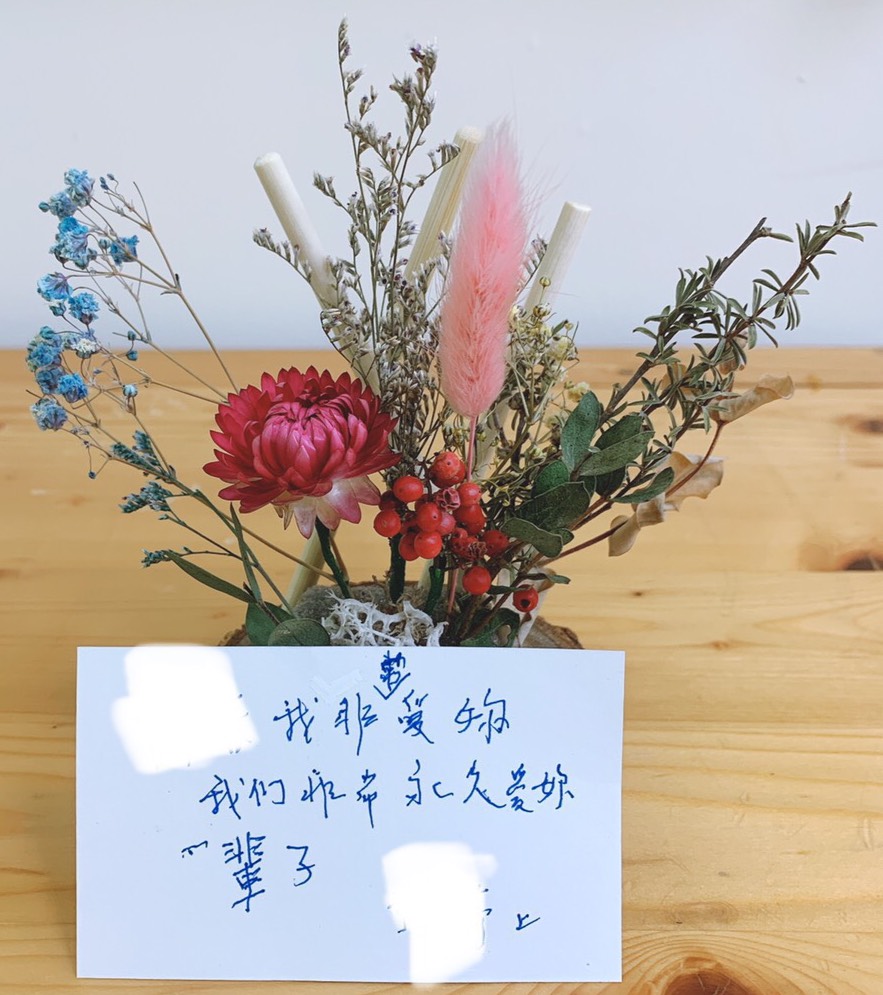 我非常愛妳
我们非常永久愛妳
一輩子
上